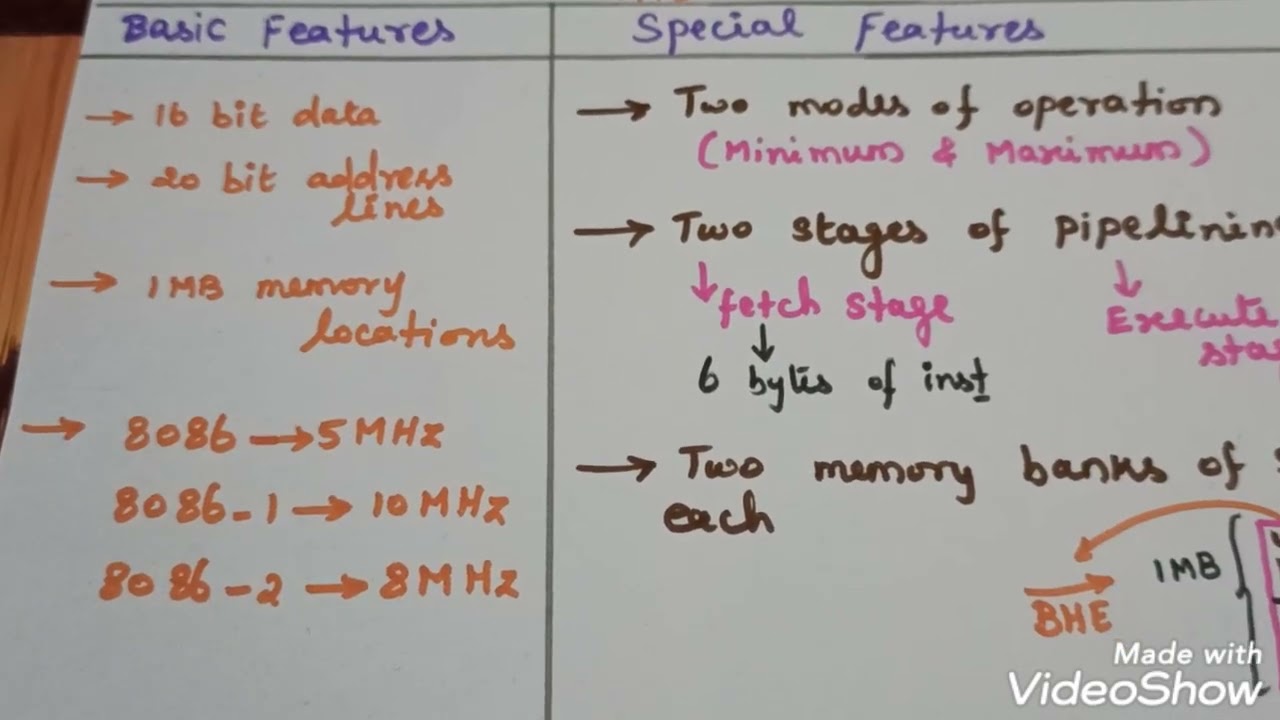 Basic Features
→ 16 bit data
→ 20 bit address
lines
→ 1MB memory
locations
→ 8086 → 5 MHz
8086-1 → 10 MHz
8086-2 → 8 MHz
Special Features
→ Two modes of operation
(Minimum & Maximum)
→ Two stages of pipelinin
↓ fetch stage
↓ Execute
sta
↓
6 bytes of inst
→ Two memory banks of
each
1MB
BHE
Made with
VideoShow